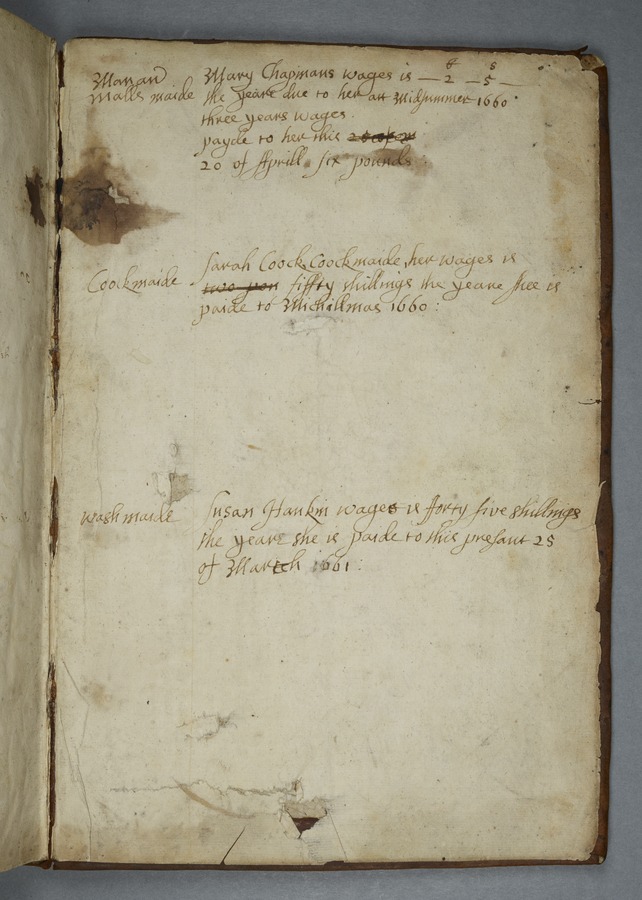 ll s
Mary Chapmans wages is — 2 — 5 —
malls maide the yeare due to her att Midsummer 1660
three years wages.
payde to her this
20 of Aprill six pounds
Sarah Coock Coockmaide her wages is
Coockmaide two pon fiffty shillings the yeare shee is
paide to Michillmas 1660:
wash maide Susan Hankin wages is forty five shillings
the yeare she is paide to this presant 25
of March 1661: